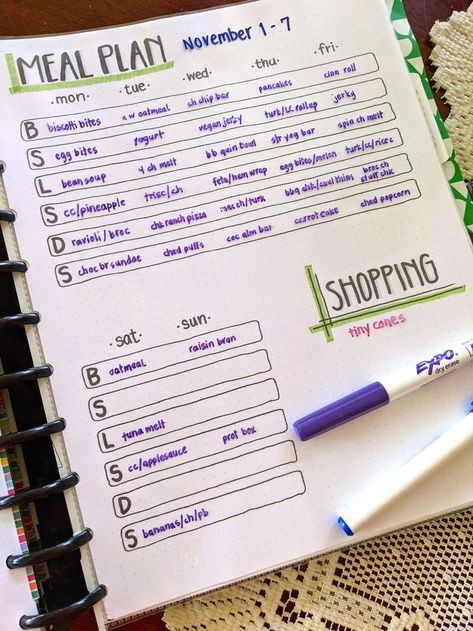 MEAL PLAN November 1 - 7
·mon· ·tue· ·wed· ·thu· ·fri·
B biscotti bites a w oatmeal ch chip bar pancakes cinn roll
S egg bites yogurt vegan jerky turk/LC roll up jerky
L bean soup 4 ch melt bb quin bowl str yog bar spin ch melt
S cc/pineapple trisc/ch feta/hum wrap egg bites/melon turk/cc/rice c
D ravioli / broc chk ranch pizza mac ch/turk bbq chk/caul thins broc ch stuff chk
S choc br sundae ched puffs coc alm bar carrot cake ched popcorn
SHOPPING
tiny cones
·sat· ·sun·
B oatmeal raisin bran
S
L tuna melt
S cc/applesauce prot box
D
S bananas/ch/pb
EXPO
dry erase